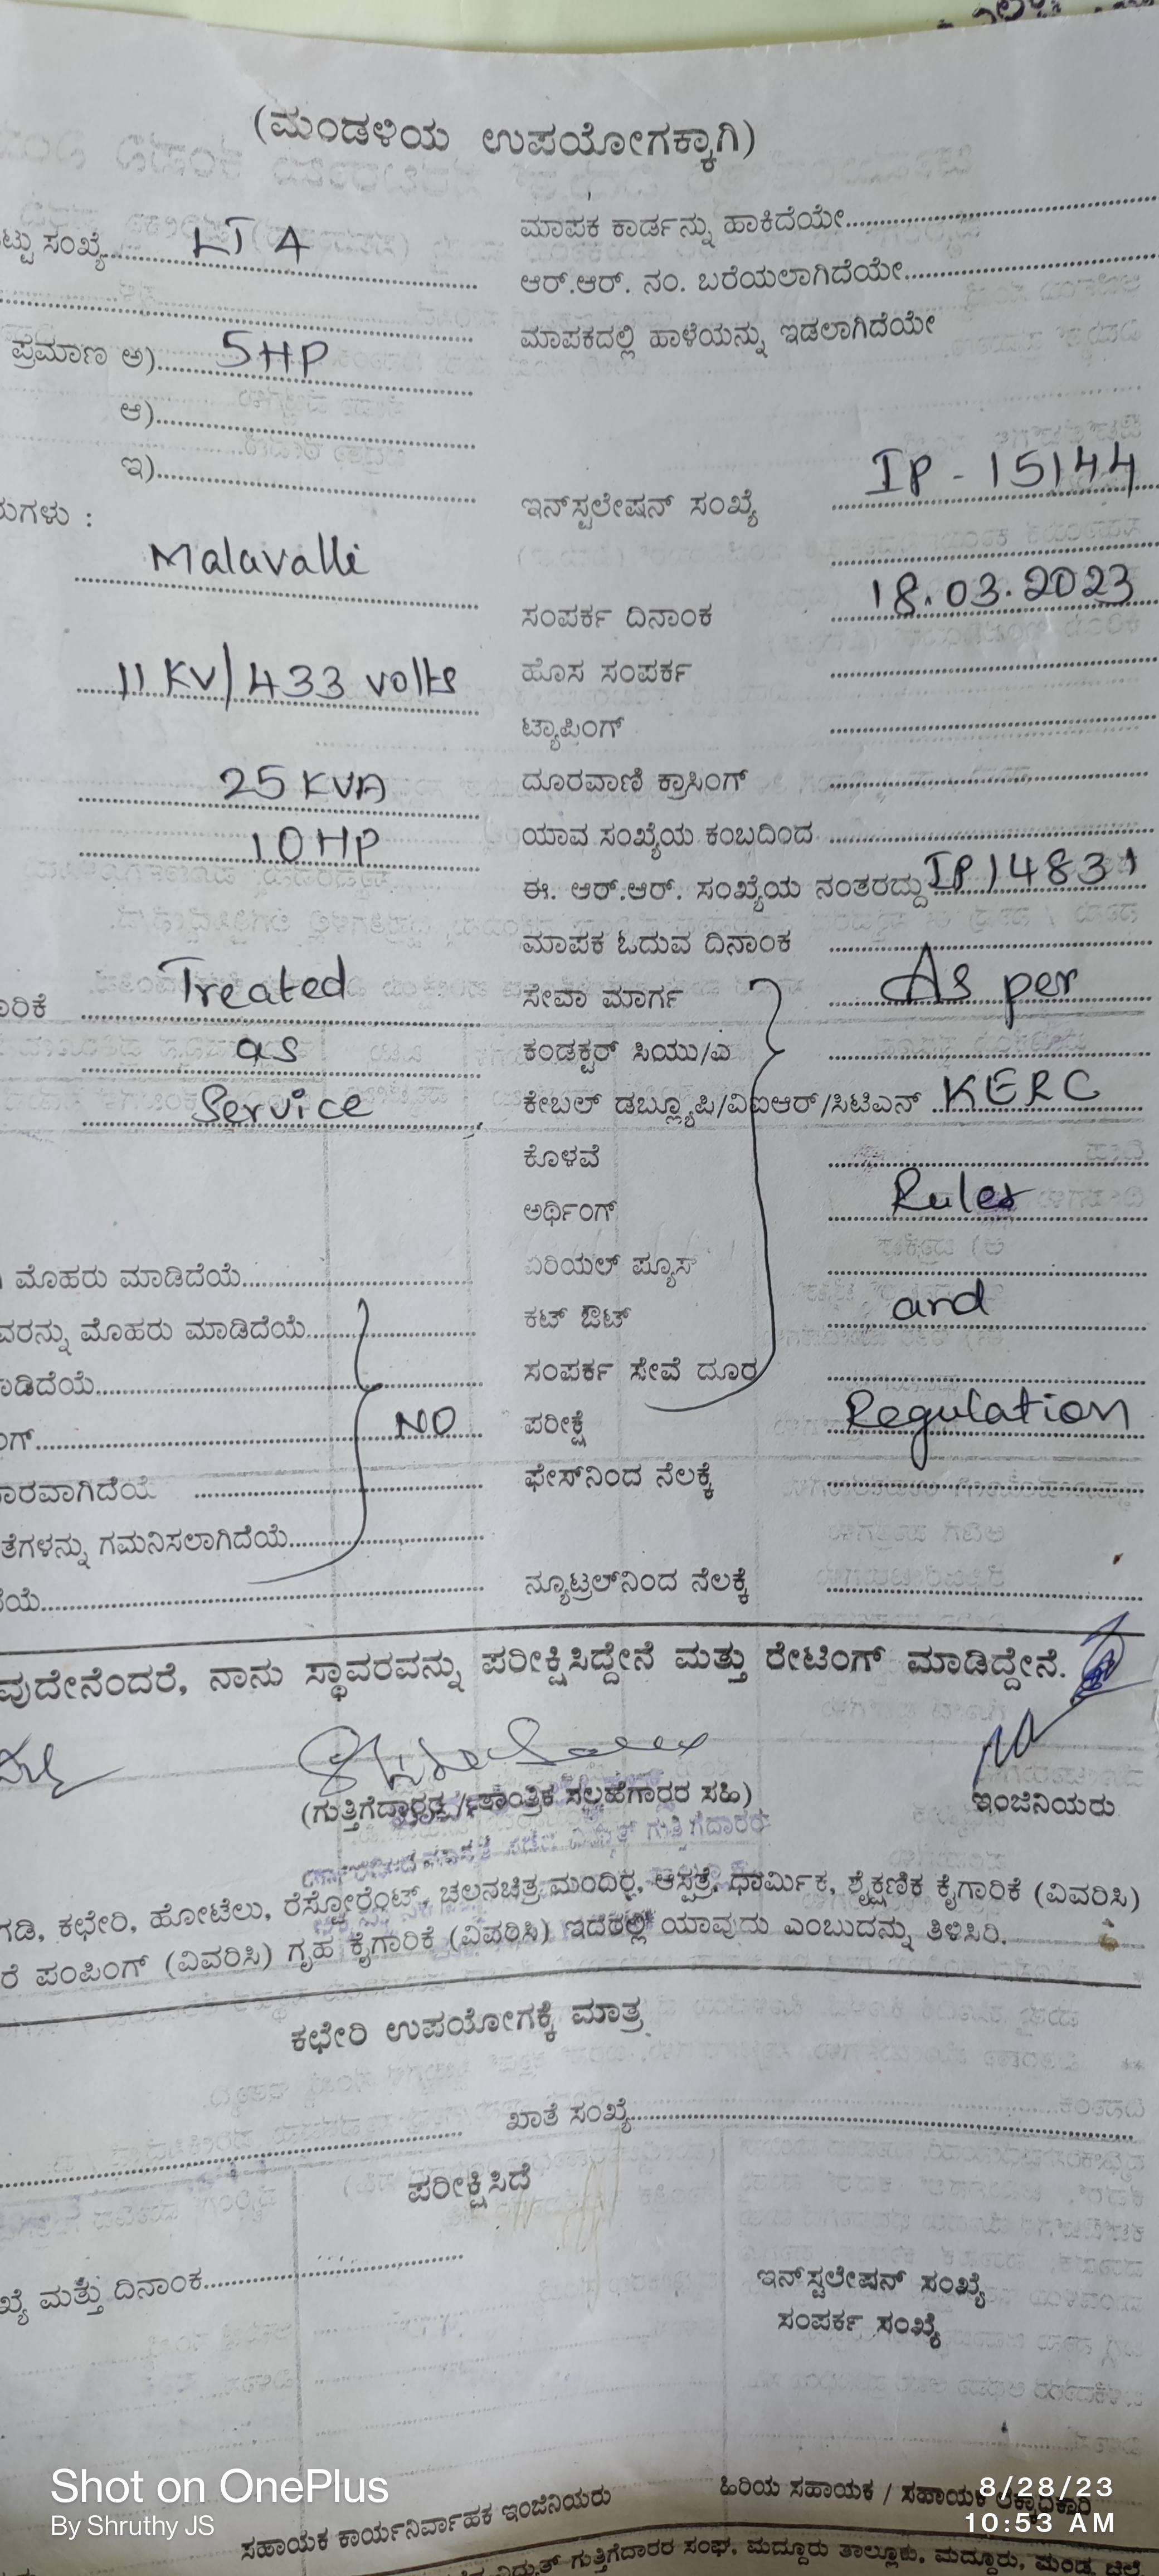 (ಮಂಡಳಿಯ ಉಪಯೋಗಕ್ಕಾಗಿ)
ಟ್ಟು ಸಂಖ್ಯೆ LT 4
ಪ್ರಮಾಣ ಅ) 5HP
ಆ)
ಇ)
ರುಗಳು :
Malavalli
11 KV/433 volts
25 KVA
10 HP
ಾರಿಕೆ Treated
as
Service
ಮೊಹರು ಮಾಡಿದೆಯೆ
ವರನ್ನು ಮೊಹರು ಮಾಡಿದೆಯೆ
ಾಡಿದೆಯೆ
ಂಗ್ NO
ಾರವಾಗಿದೆಯೆ
ತೆಗಳನ್ನು ಗಮನಿಸಲಾಗಿದೆಯೆ
ೆಯೆ
ಮಾಪಕ ಕಾರ್ಡನ್ನು ಹಾಕಿದೆಯೇ
ಆರ್.ಆರ್. ನಂ. ಬರೆಯಲಾಗಿದೆಯೇ
ಮಾಪಕದಲ್ಲಿ ಹಾಳೆಯನ್ನು ಇಡಲಾಗಿದೆಯೇ
ಇನ್‌ಸ್ಟಲೇಷನ್ ಸಂಖ್ಯೆ IP - 15144
ಸಂಪರ್ಕ ದಿನಾಂಕ 18.03.2023
ಹೊಸ ಸಂಪರ್ಕ
ಟ್ಯಾಪಿಂಗ್
ದೂರವಾಣಿ ಕ್ರಾಸಿಂಗ್
ಯಾವ ಸಂಖ್ಯೆಯ ಕಂಬದಿಂದ
ಈ. ಆರ್.ಆರ್. ಸಂಖ್ಯೆಯ ನಂತರದ್ದು IP 14831
ಮಾಪಕ ಓದುವ ದಿನಾಂಕ
ಸೇವಾ ಮಾರ್ಗ As per
ಕಂಡಕ್ಟರ್ ಸಿಯು/ಎ
ಕೇಬಲ್ ಡಬ್ಲ್ಯೂಪಿ/ವಿಐಆರ್/ಸಿಟಿಎಸ್ KERC
ಕೊಳವೆ
ಅರ್ಥಿಂಗ್ Rules
ಏರಿಯಲ್ ಪ್ಯೂಸ್
ಕಟ್ ಔಟ್ and
ಸಂಪರ್ಕ ಸೇವೆ ದೂರ
ಪರೀಕ್ಷೆ Regulation
ಫೇಸ್‌ನಿಂದ ನೆಲಕ್ಕೆ
ನ್ಯೂಟ್ರಲ್‌ನಿಂದ ನೆಲಕ್ಕೆ
ವುದೇನೆಂದರೆ, ನಾನು ಸ್ಥಾವರವನ್ನು ಪರೀಕ್ಷಿಸಿದ್ದೇನೆ ಮತ್ತು ರೇಟಿಂಗ್ ಮಾಡಿದ್ದೇನೆ.
(ಗುತ್ತಿಗೆದಾರರ / ತಾಂತ್ರಿಕ ಸಲ್ಲಹೆಗಾರರ ಸಹಿ)
ಇಂಜಿನಿಯರು
ಗಡಿ, ಕಛೇರಿ, ಹೋಟೆಲು, ರೆಸ್ಟೋರೆಂಟ್, ಚಲನಚಿತ್ರ ಮಂದಿರ, ಆಸ್ಪತ್ರೆ, ಧಾರ್ಮಿಕ, ಶೈಕ್ಷಣಿಕ ಕೈಗಾರಿಕೆ (ವಿವರಿಸಿ)
ರೆ ಪಂಪಿಂಗ್ (ವಿವರಿಸಿ) ಗೃಹ ಕೈಗಾರಿಕೆ (ವಿವರಿಸಿ) ಇದರಲ್ಲಿ ಯಾವುದು ಎಂಬುದನ್ನು ತಿಳಿಸಿರಿ.
ಕಛೇರಿ ಉಪಯೋಗಕ್ಕೆ ಮಾತ್ರ
ಖಾತೆ ಸಂಖ್ಯೆ
ಪರೀಕ್ಷಿಸಿದೆ
ಖ್ಯೆ ಮತ್ತು ದಿನಾಂಕ
ಇನ್‌ಸ್ಟಲೇಷನ್ ಸಂಖ್ಯೆ
ಸಂಪರ್ಕ ಸಂಖ್ಯೆ
ಸಹಾಯಕ ಕಾರ್ಯನಿರ್ವಾಹಕ ಇಂಜಿನಿಯರು
ಹಿರಿಯ ಸಹಾಯಕ / ಸಹಾಯಕ ಲೆಕ್ಕಾಧಿಕಾರಿ
ವಿದ್ಯುತ್ ಗುತ್ತಿಗೆದಾರರ ಸಂಘ, ಮದ್ದೂರು ತಾಲ್ಲೂಕು, ಮದ್ದೂರು, ಮಂಡ್ಯ ಜಿಲ್ಲೆ
Shot on OnePlus
By Shruthy JS
8/28/23
10:53 AM